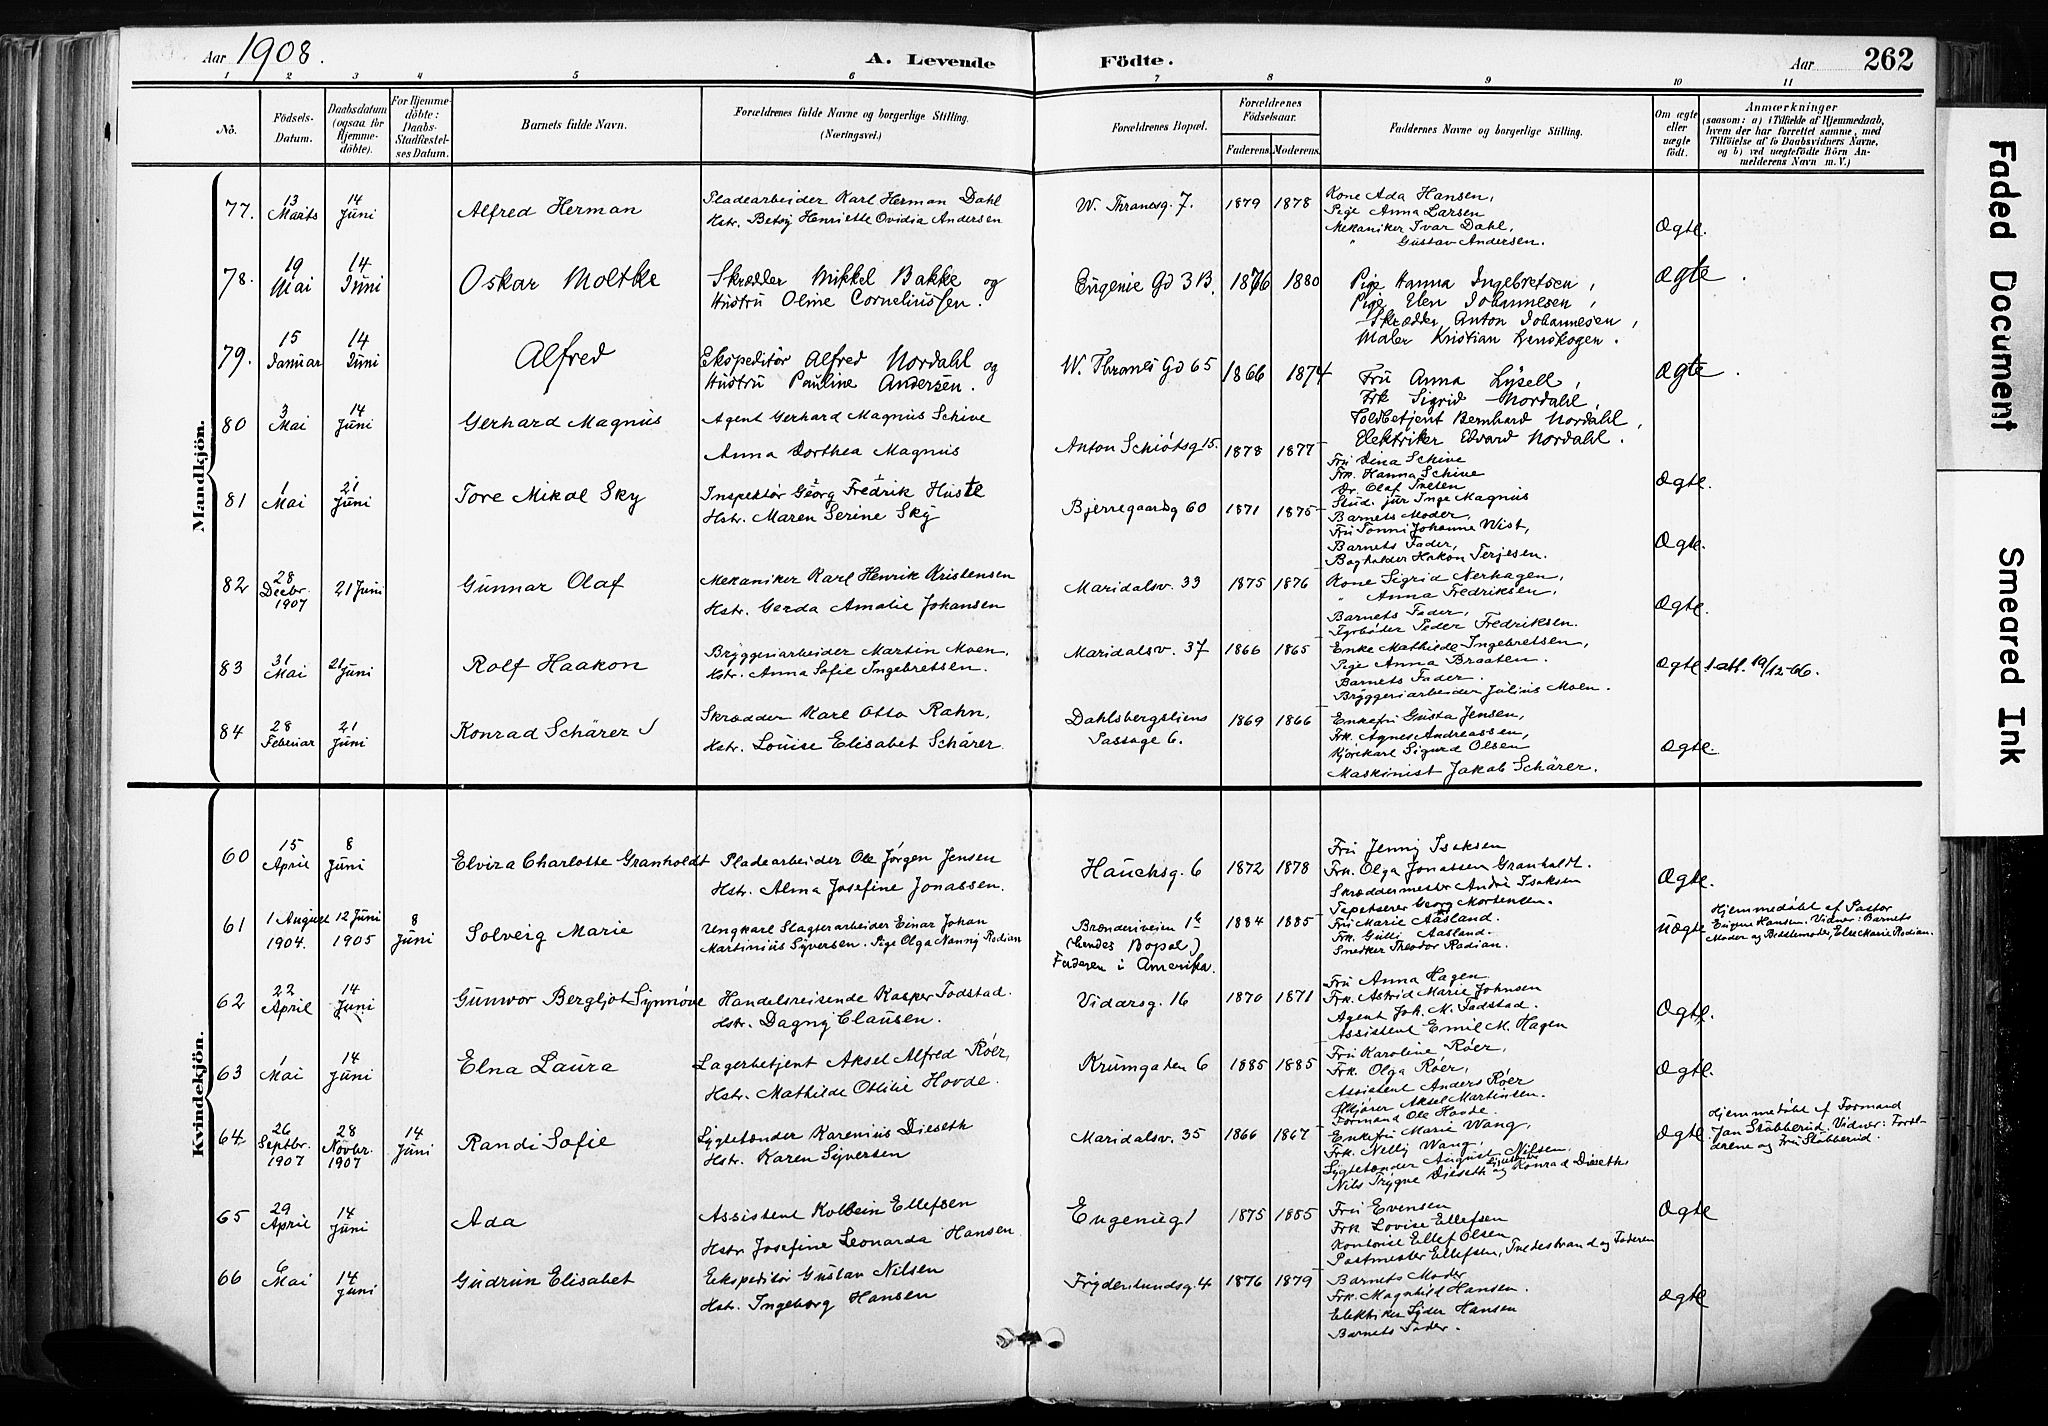 Aar 1908.
A. Levende Födte.
Aar 262
1 2 3 4 5 6 7 8 9 10 11
No.
Födsels-Datum.
Daabsdatum (ogsaa for Hjemme-döbte).
For Hjemme-döbte: Daabs-Stadfæstel-ses Datum.
Barnets fulde Navn.
Forældrenes fulde Navne og borgerlige Stilling.
(Næringsvei.)
Forældrenes Bopæl.
Forældrenes Födselsaar.
Faderens. Moderens.
Faddernes Navne og borgerlige Stilling.
Om ægte eller uægte födt.
Anmærkninger
(saasom: a) i Tilfælde af Hjemmedaab, hvem der har forrettet samme, med Tilföielse af to Daabsvidners Navne, og b) ved uægtefödte Börn An-melderens Navn m. V.)
Mandkjön.
77. 13 Marts 14 Juni Alfred Herman
Pladearbeider Karl Herman Dahl
Hstr. Betsy Henriette Ovidia Andersen
W. Thranesg. 7. 1879 1878
Kone Ada Hansen,
Pige Anna Larsen
Mekaniker Ivar Dahl,
" Gustav Andersen.
Ægte.
78. 19 Mai 14 Juni Oskar Moltke
Skrædder Mikkel Bakke og
Hustru Oline Corneliussen.
Eugenie Gd 3 B. 1876 1880
Pige Hanna Ingebretsen,
Pige Elen Johannesen,
Skrædder Anton Johannesen,
Maler Kristian Lenskogen.
Ægte.
79. 15 Januar 14 Juni Alfred
Ekspeditør Alfred Nordahl og
Hustru Pauline Andersen.
W. Thranes Gd 65 1866 1874
Fru Anna Lysell,
Frk Sigrid Nordahl,
Toldbetjent Bernhard Nordahl,
Elektriker Edvard Nordahl.
Ægte.
80 3 Mai 14 Juni Gerhard Magnus
Agent Gerhard Magnus Schive
Anna Dorthea Magnus
Anton Schiøtsg 15. 1878 1877
Fru Dina Schive
Frk. Hanna Schive
Dr. Olaf
Stud. jur Inge Magnus
Ægte.
81 1 Mai 21 Juni Tore Mikal Sky
Inspektør Georg Fredrik Huste
Hstr. Maren Serine Sky
Bjerregaardsg 60 1871 1875
Barnets Moder,
Fru Tonni Johanne Wist,
Barnets Fader,
Bogholder Hakon Terjesen.
Ægte.
82 28 Decbr. 1907 21 Juni Gunnar Olaf
Mekaniker Karl Henrik Kristensen
Hstr. Gerda Amalie Johansen
Maridalsv. 33 1875 1876
Kone Sigrid Nerhagen,
" Anna Fredriksen,
Barnets Fader,
Fyrbøder Peder Fredriksen.
Ægte.
83 31 Mai 21 Juni Rolf Haakon
Bryggeriarbeider Martin Moen.
Hstr. Anna Sofie Ingebretsen.
Maridalsv. 37 1866 1865
Enke Mathilde Ingebretsen,
Pige Anna Braaten.
Barnets Fader.
Bryggeriarbeider Julius Moen.
Ægte 1 att. 19/12-66.
84 28 Februar 21 Juni Konrad Schärer
Skrædder Karl Otto Rahn.
Hstr. Louise Elisabet Schärer.
Dahlsbergstiens
Passage 6. 1869 1866
Enkefru Gusta Jensen,
Frk. Agnes Andreassen,
Kjørekarl Sigurd Olsen
Maskinist Jakob Schärer.
Ægte.
Kvindekjön.
60 15 April 8 Juni Elvira Charlotte Granholdt
Pladearbeider Ole Jørgen Jensen
Hstr. Alma Josefine Jonassen.
Hauchsg. 6 1872 1878
Fru Jenny Isaksen
Frk. Olga Jonassen Granholdt.
Skræddermester André Isaksen
Tapetserer Georg Mortensen.
Ægte.
61 1 August 1904. 12 Juni 1905 8 Juni Solveig Marie
Ungkarl Slagterarbeider Einar Johan
Martinius Syversen. Pige Olga Nanny Rodian
Brænderiveien 1
(hendes Bopæl)
Faderen i Amerika. 1884 1885
Fru Marie Aasland.
Frk. Gulli Aasland.
Snedker Theodor Rodian.
Uægte
Hjemmedøbt af Pastor
Eugene Hansen. Vidner: Barnets
Moder og Bedstemoder, Else Marie Rodian.
62 22 April 14 Juni Gunvor Bergljot Synnøve
Handelsreisende Kasper Todstad.
Hstr. Dagny Clausen.
Vidarsg. 16 1870 1871
Fru Anna Hagen
Frk. Astrid Marie Johnsen
Agent Joh. M. Todstad.
Assistent Emil M. Hagen
Ægte.
63 1 Mai 14 Juni Elna Laura
Lagerbetjent Aksel Alfred Røer,
Hstr. Mathilde Otilie Hovde.
Krumgaten 6 1885 1885
Fru Karoline Røer,
Frk. Olga Røer,
Assistent Anders Røer
Aksel Martinsen.
Formand Ole Hovde.
Ægte.
64 26 Septbr. 1907 28 Novbr. 1907 14 Juni Randi Sofie
Lygtetænder Karenius Dieseth
Hstr. Karen Syversen
Maridalsv. 35 1866 1867
Enkefru Marie Wang,
Frk. Nelly Wang,
Lygtetænder August Nilsen,
Nils Trygve Dieseth og Konrad Dieseth
Ægte
Hjemmedøbt af Formand
Jan Stubberud. Vidner: Foræl-
drene og Fru Stubberud.
65 29 April 14 Juni Ada
Assistent Kolbein Ellefsen
Hstr Josefine Leonarda Hansen
Eugenieg 1 1875 1885
Fru Evensen
Frk Lovise Ellefsen
Kontorist Ellef Olsen
Postmester Ellefsen, Tvedestrand og Faderen
Ægte
66 6 Mai 14 Juni Gudrun Elisabet
Ekspeditør Gustav Nilsen
Hstr. Ingeborg Hansen
Frydenlundsg. 4 1876 1879
Barnets Moder
Frk. Magnhild Hansen.
Elektriker Lyder Hansen
Barnets Fader.
Ægte
Faded Document
Smeared Ink